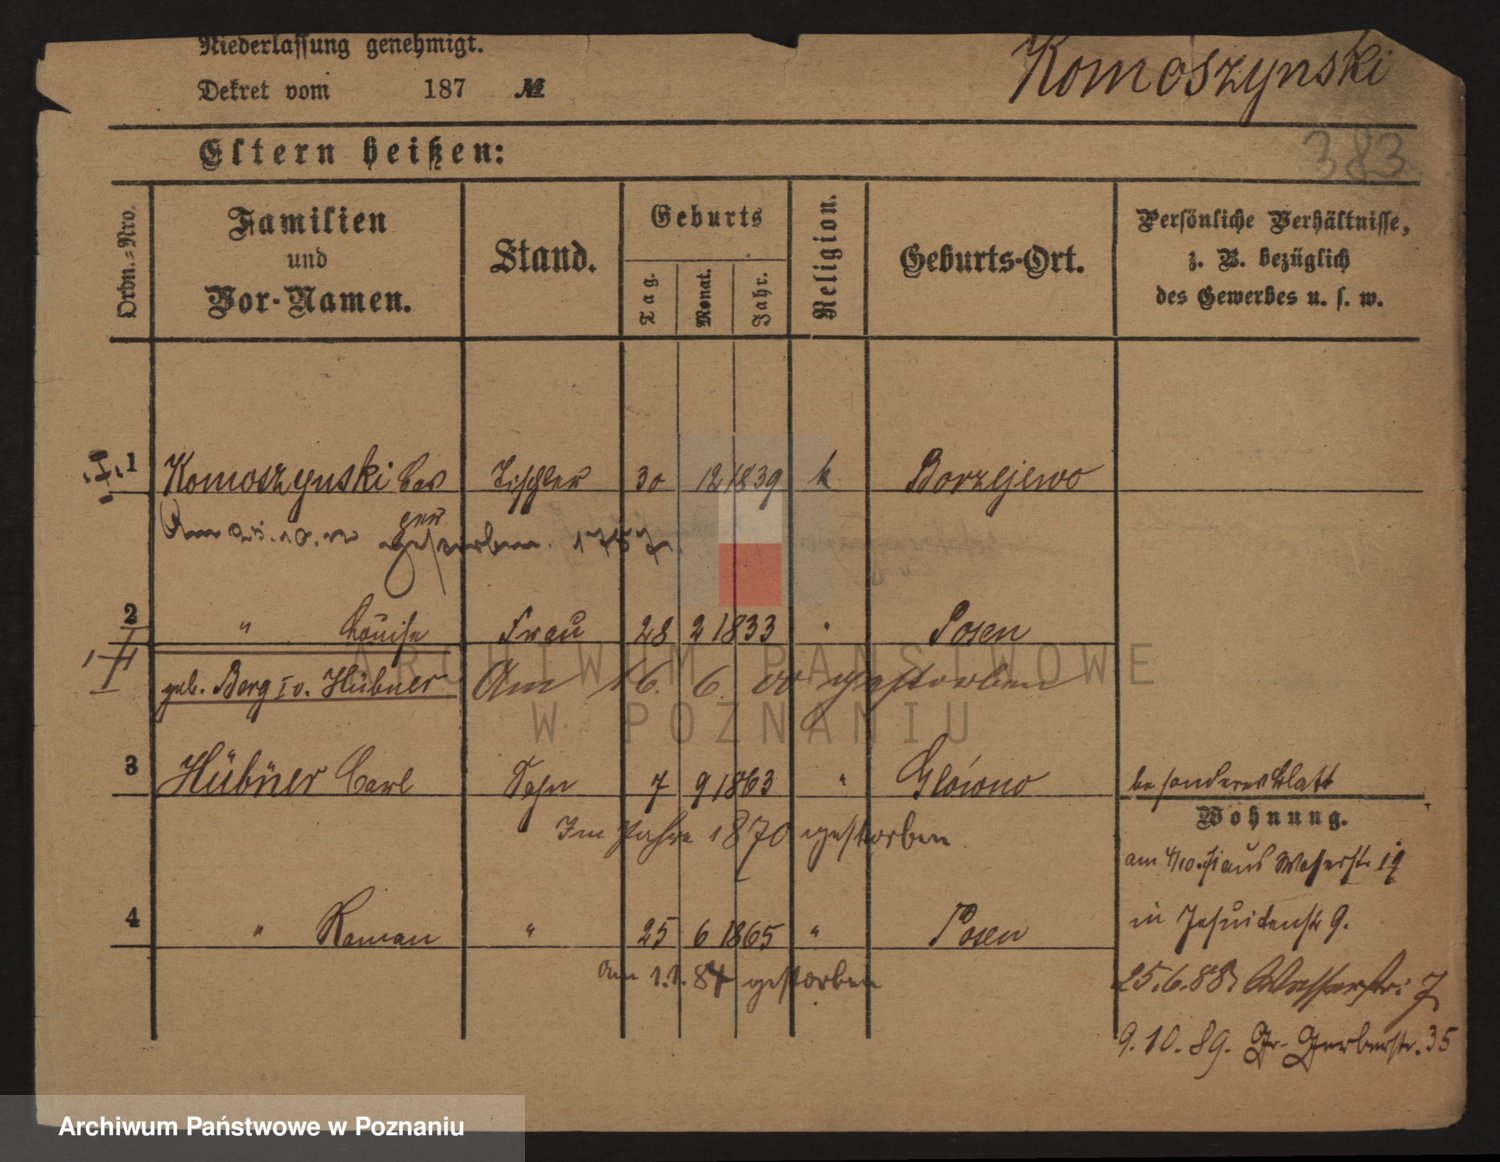 Niederlassung genehmigt.
Dekret vom 187 №
Komoszynski
383
Eltern heißen:
Ordn.-Nro.
Familien
und
Vor-Namen.
Stand.
Geburts
Tag.
Monat.
Jahr.
Religion.
Geburts-Ort.
Persönliche Verhältnisse,
z. B. bezüglich
des Gewerbes u. s. w.
1 Komoszynski Tischler 30 12 1839 k Borzejewo
Am gestorben.
2 " Louise Frau 28 2 1833 " Posen
geb. Berg I v. Hübner Am 16. 6. 00 gestorben
3 Hübner Carl Sohn 7 9 1863 " Glówno besonderes Blatt
Im Jahre 1870 gestorben
Wohnung.
am aus 19
4 " Roman " 25 6 1865 " Posen
in Jesuitenstr 9.
am 1.1. 87 gestorben
25.6.88. Wasserstr. 7
9.10.89. Gr. Gerberstr. 35
ARCHIWUM PAŃSTWOWE
W POZNANIU
Archiwum Państwowe w Poznaniu